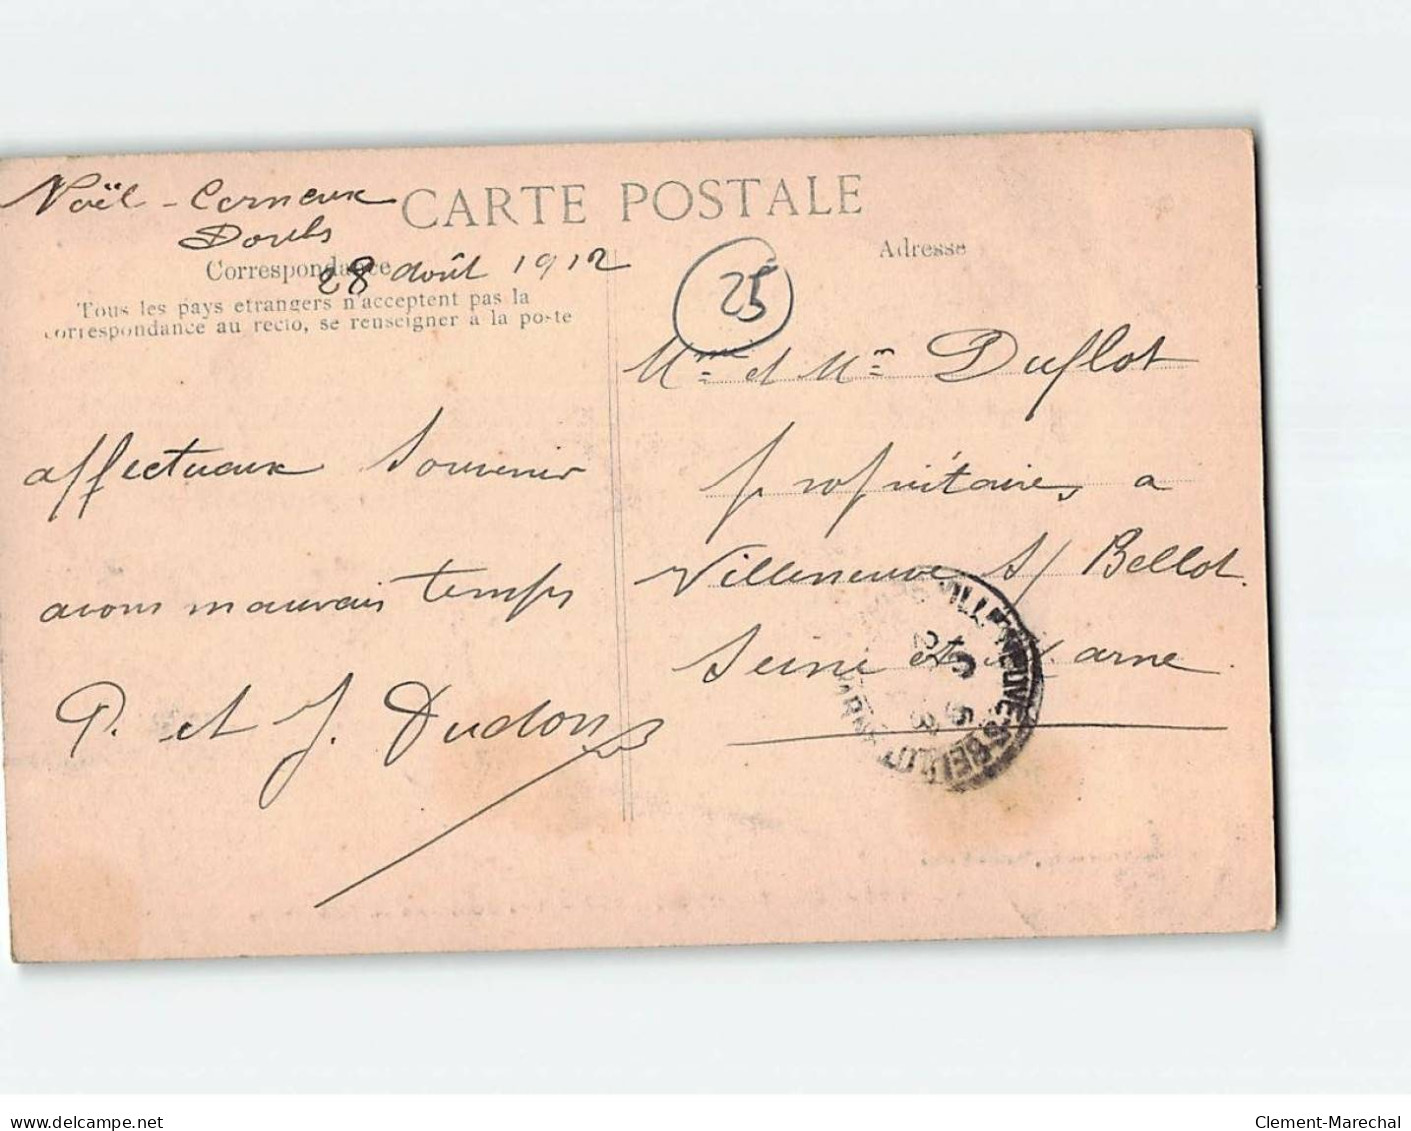 Noël-Cerneux
CARTE POSTALE
Doubs
Correspondance
28 août 1912
Tous les pays etrangers n'acceptent pas la
correspondance au recto, se renseigner à la poste
affectueux Souvenir
avons mauvais temps
P. et J. Dudon
Adresse
25
Mr et Me Duflot
propriétaires a
Villeneuve S/ Bellot.
Seine et Marne
VILLENEUVE-S-BELLOT
delcampe.net
Clement-Marechal